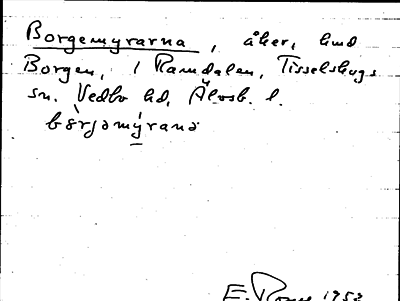 Borgemyrarna, åker, hmd
Borgen, i Ramdalen, Tisselskogs
sn. Vedbo hd, Älvsb. l.
bórjəmýranə
E. 1952